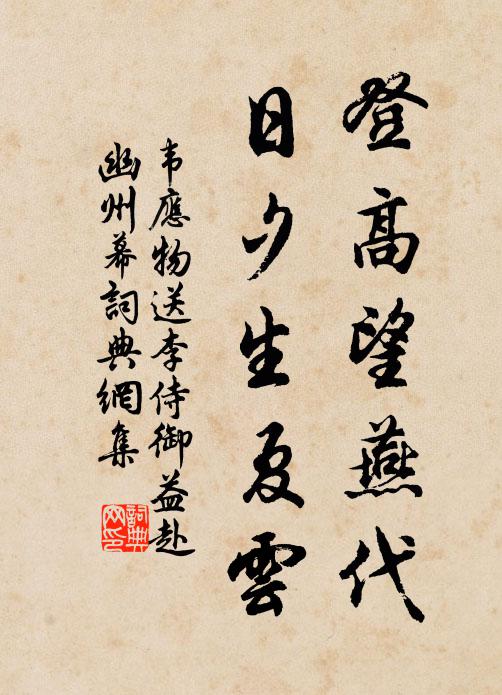 登高望燕代
日夕生夏雲
韦應物送李侍御益赴
幽州幕詞典網集
詞典
网印